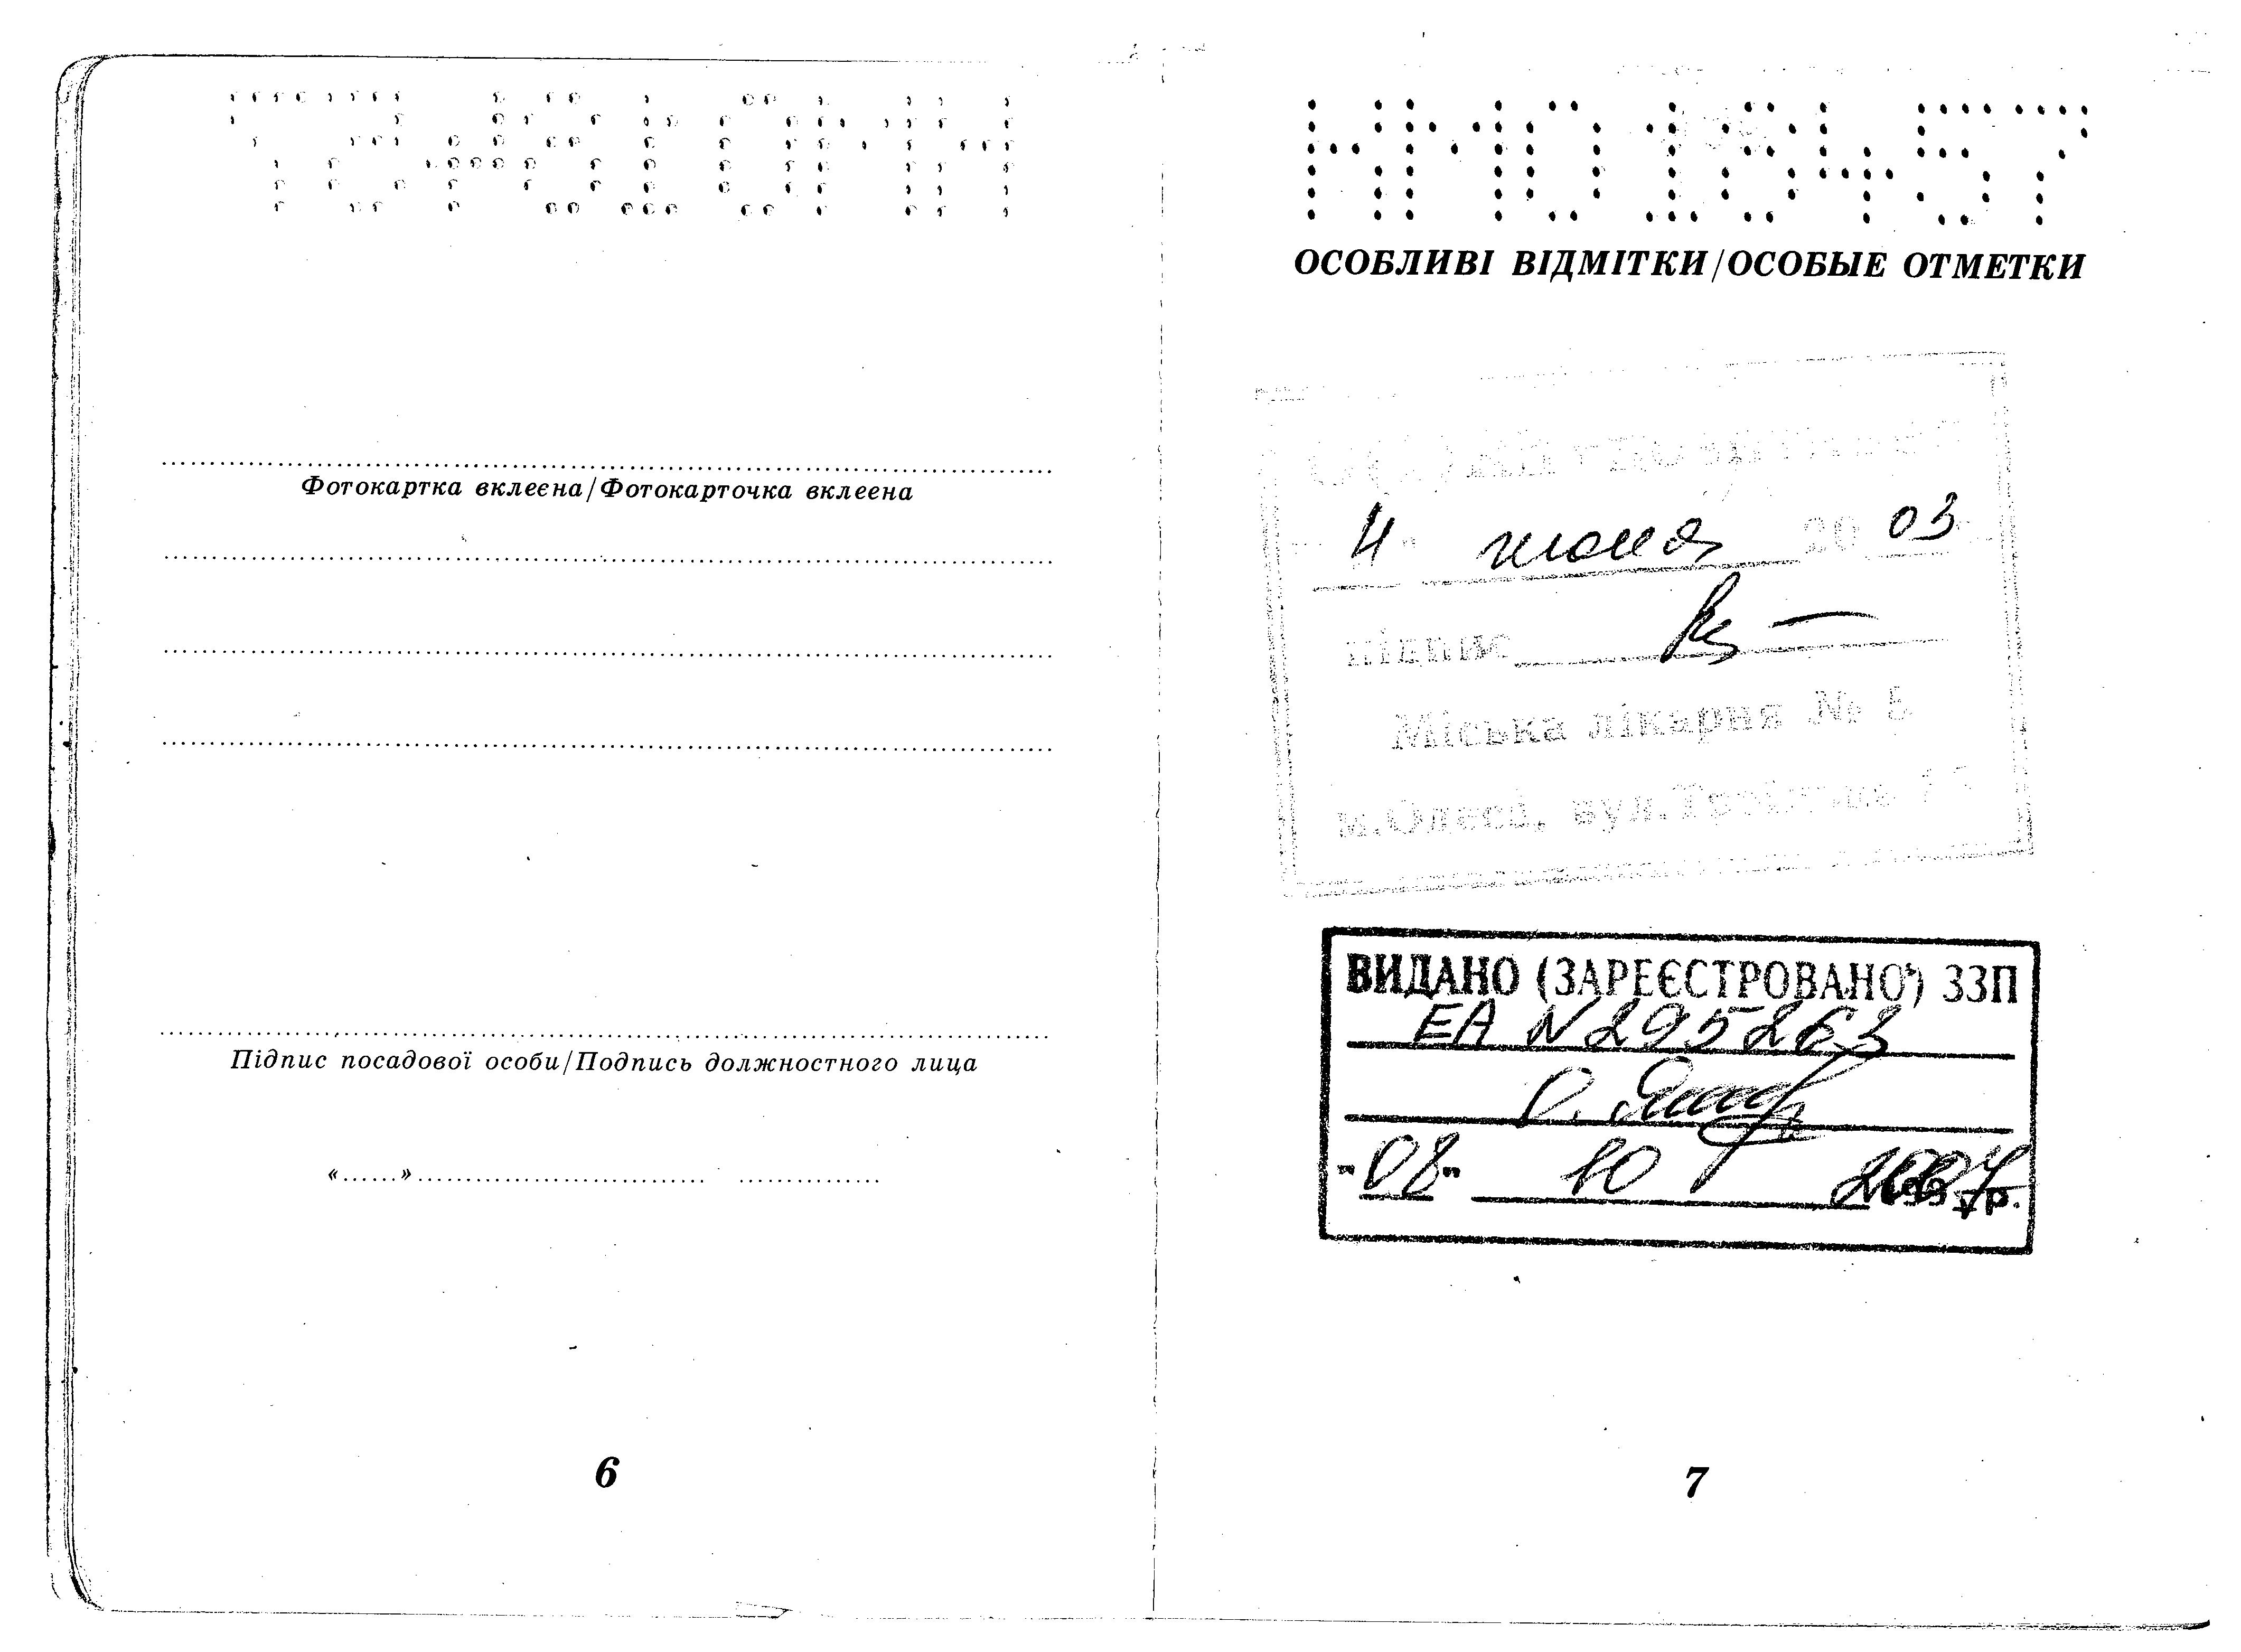 Фотокартка вклеєна/Фотокарточка вклеена
Підпис посадової особи/Подпись должностного лица
«......»
6
НМ018457
ОСОБЛИВІ ВІДМІТКИ/ОСОБЫЕ ОТМЕТКИ
20 03
підпис
Міська лікарня № 8
м.Одеса, вул.Троїцька
ВИДАНО (ЗАРЕЄСТРОВАНО) ЗЗП
ЕА N 295263
"08" 10 2004 р.
7